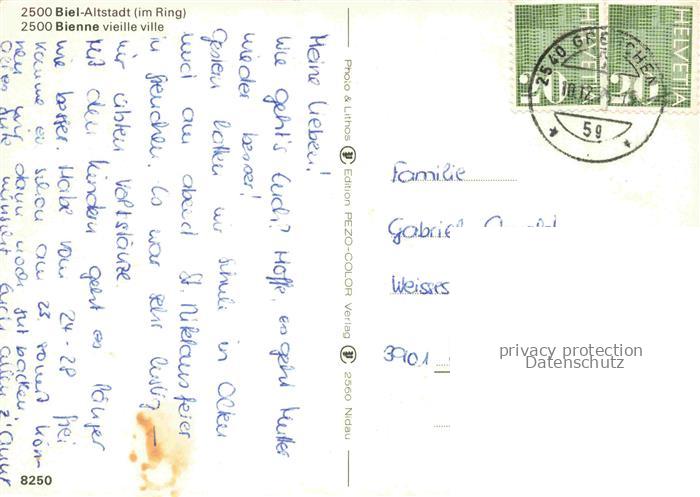 2500 Biel-Altstadt (im Ring)
2500 Bienne vieille ville
Meine Lieben!
Wie geht's Euch? Hoffe, es geht Mutter
wieder besser!
Gestern hatten wir Schule in Olten
und am abend St. Niklausfeier
in Grenchen. Es war sehr lustig –
wir übten Volkstänze.
Mit den Kindern geht es länger
wie besser. Habe vom 24-28 frei
komme ev schon am 23. somit kön-
nen wir dann noch gut backen.
alles Gute wünscht Euch allen
8250
Photo & Lithos Edition PEZO-COLOR Verlag 2560 Nidau
HELVETIA HELVETIA
2540 GRENCHEN
10.12.
5g
Familie
Gabriel
Weisses
3901
privacy protection
Datenschutz